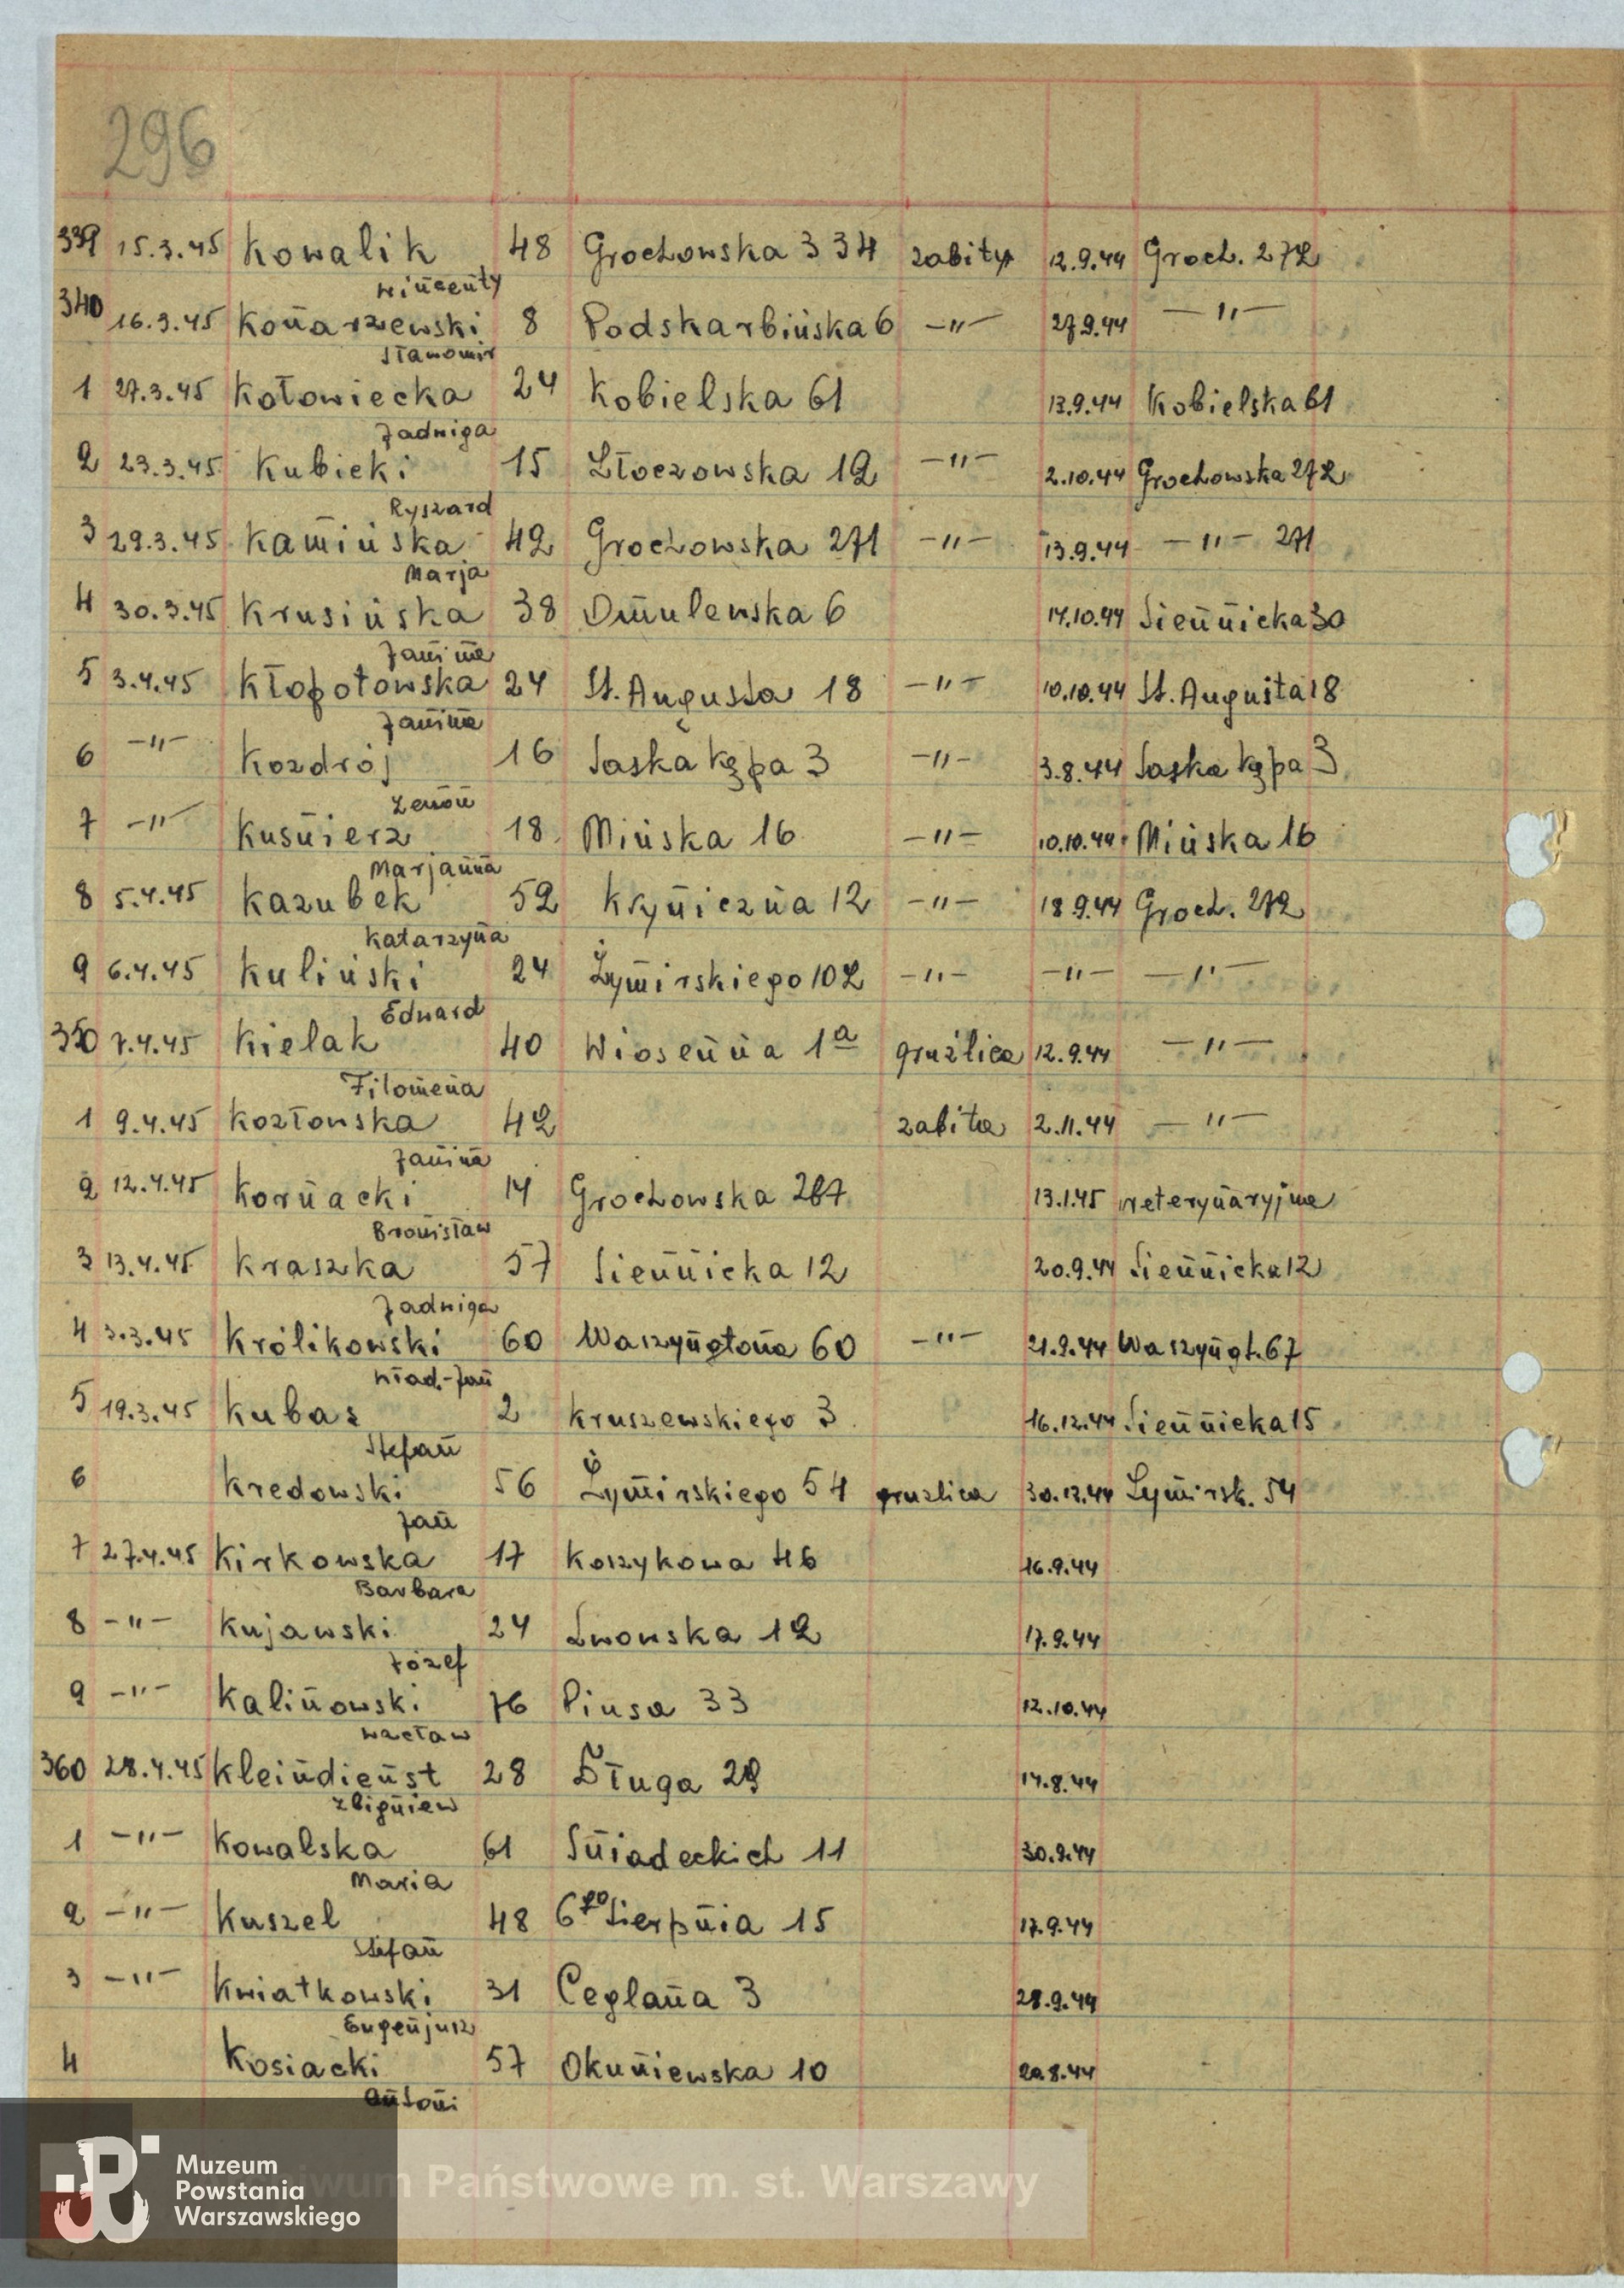 296
339 15.3.45 Kowalik 48 Grochowska 334 zabity 12.9.44 Groch. 272
Wincenty
340 16.3.45 Konarzewski 8 Podskarbińska 6 —"— 27.9.44 —"—
Sławomir
1 27.3.45 Kołowiecka 24 Kobielska 61 13.9.44 Kobielska 61
Jadwiga
2 23.3.45 Kubicki 15 Złoczowska 12 —"— 2.10.44 Grochowska 272
Ryszard
3 29.3.45 Kamińska 42 Grochowska 271 —"— 13.9.44 —"— 271
Marja
4 30.3.45 Krusińska 38 Omulewska 6 14.10.44 Siennicka 30
Janina
5 3.4.45 Kłopotowska 24 St. Augusta 18 —"— 10.10.44 St. Augusta 18
Janina
6 —"— Kozdrój 16 Saska Kępa 3 —"— 3.8.44 Saska Kępa 3
Zenon
7 —"— Kuśnierz 18 Mińska 16 —"— 10.10.44 Mińska 16
Marjanna
8 5.4.45 Kazubek 52 Kryniczna 12 —"— 18.9.44 Groch. 272
Katarzyna
9 6.4.45 Kuliński 24 Żymirskiego 102 —"— —"— —"—
Edward
350 7.4.45 Kielak 40 Wiosenna 1a gruźlica 12.9.44 —"—
Filomena
1 9.4.45 Kozłowska 42 zabita 2.11.44 —"—
Janina
2 12.4.45 Kornacki 14 Grochowska 267 13.1.45 Weterynaryjna
Bronisław
3 13.4.45 Kraszka 57 Siennicka 12 20.9.44 Siennicka 12
Jadwiga
4 3.3.45 Królikowski 60 Waszyngtona 60 —"— 21.9.44 Waszyngt. 67
Wład.-Jan
5 19.3.45 Kubas 2 Kruszewskiego 3 16.12.44 Siennicka 15
Stefan
6 Kredowski 56 Żymirskiego 54 gruzlica 30.12.44 Żymirsk. 54
Jan
7 27.4.45 Kirkowska 17 Koszykowa 46 16.9.44
Barbara
8 —"— Kujawski 24 Lwowska 12 17.9.44
Józef
9 —"— Kalinowski 76 Piusa 33 12.10.44
Wacław
360 28.4.45 Kleindienst 28 Długa 29 14.8.44
Zbigniew
1 —"— Kowalska 61 Śniadeckich 11 30.9.44
Maria
2 —"— Kuszel 48 6go Sierpnia 15 17.9.44
Stefan
3 —"— Kwiatkowski 31 Ceglana 3 28.9.44
Eugenjusz
4 Kosiacki 57 Okuniewska 10 20.8.44
Antoni
Muzeum
Powstania
Warszawskiego
iwum Państwowe m. st. Warszawy